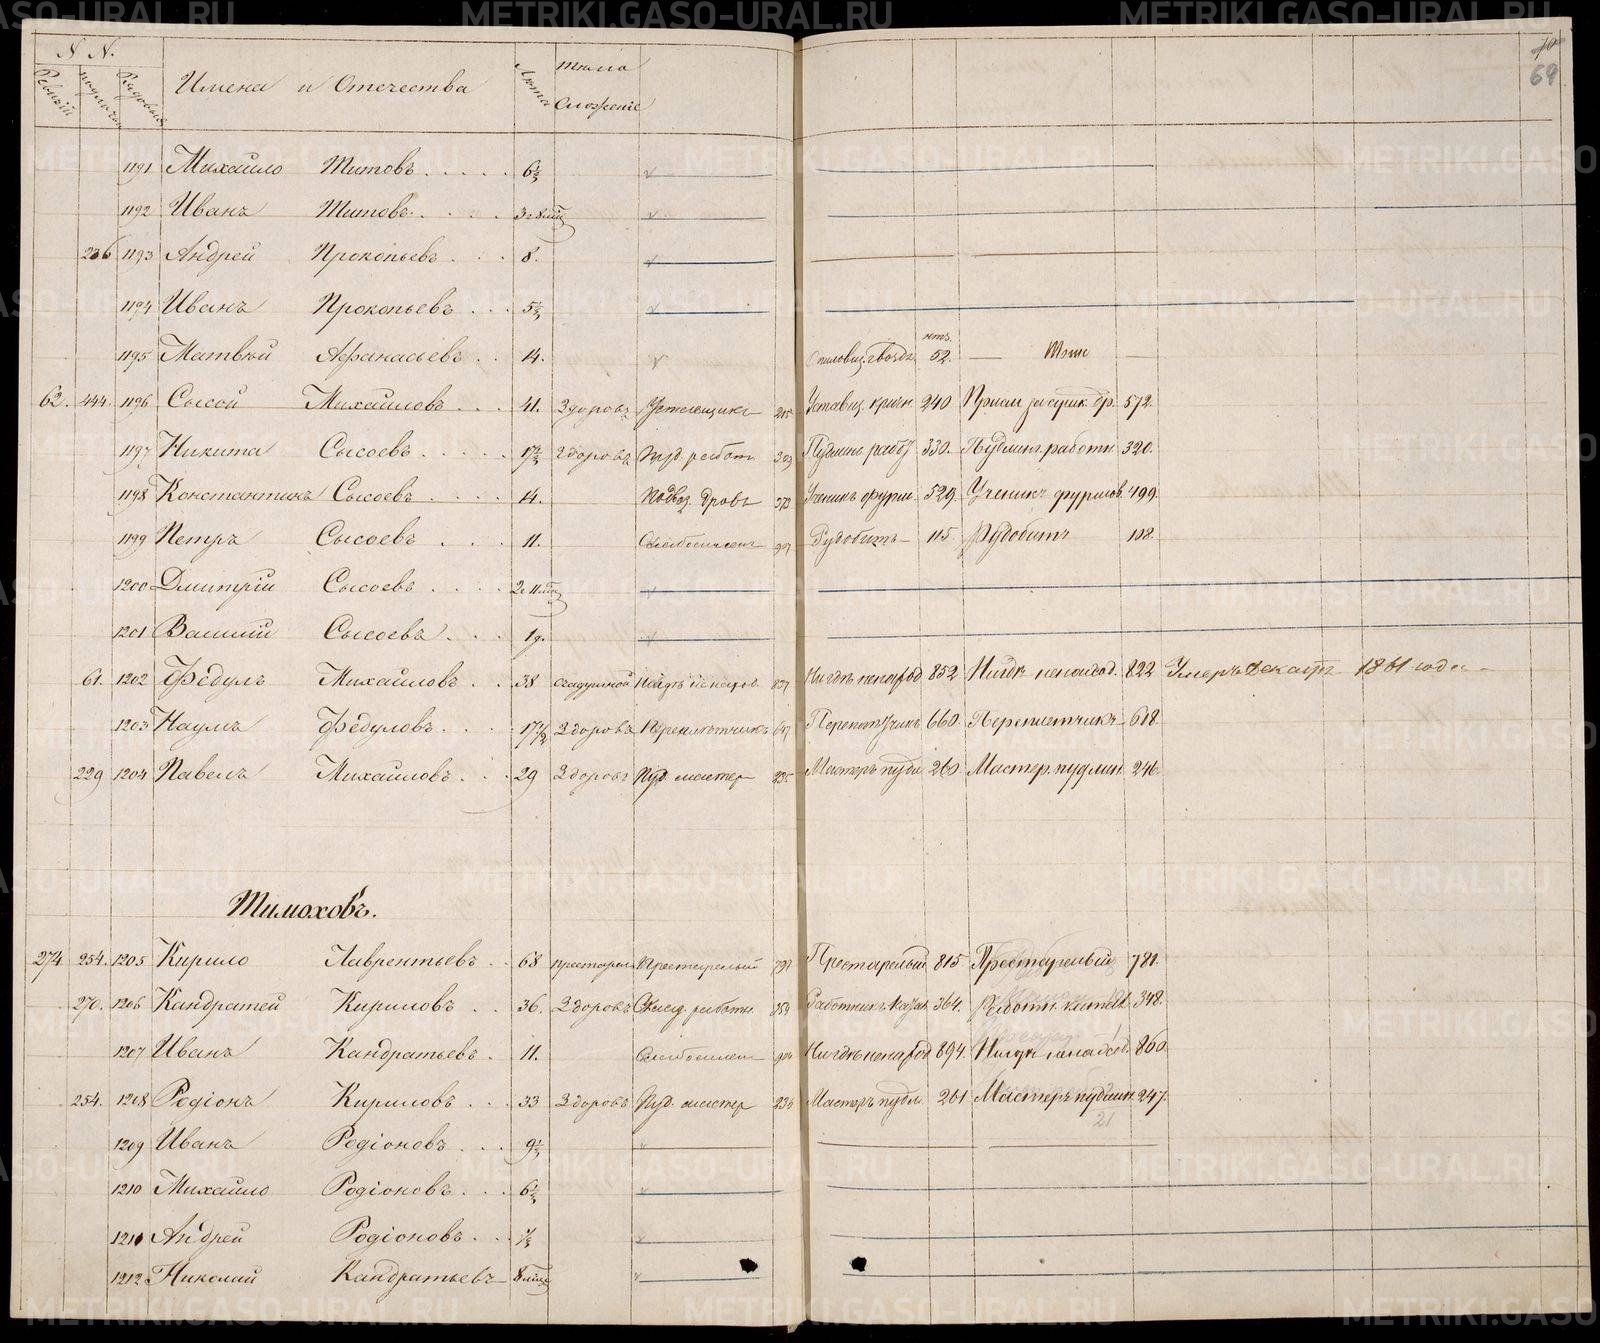 N N.
Ревизій
Рядовые
Имена и Отчества
Лета
тѣло
сложеніе
70
69
1191 Михайло Титовъ 6½
1192 Иванъ Титовъ 3 г 8 мц
236 1193 Андрей Прокопьевъ 8.
1194 Иванъ Прокопьевъ 5½
1195 Матвѣй Афанасьевъ 14. 52. — Тоже —
62. 444. 1196 Сысой Михайловъ 41. Здоровъ 215 Уставщ. кричн. 240 572.
1197 Никита Сысоевъ 17½ Здоровъ Пуд. работ 303 Пудлинг. раб. 330. Пудлинг. работн. 320.
1198 Константинъ Сысоевъ 14. Подвоз. дровъ 373 Ученикъ фурм. 529. Ученикъ фурмов. 499.
1199 Петръ Сысоевъ 11. Рудобитъ 115. Рудобитъ 108.
1200 Дмитрій Сысоевъ 2 г 11 мц
1201 Василій Сысоевъ 1 г.
61. 1202 Ѳедулъ Михайловъ 38 Нигдѣ ненаряд. 852 Нигдѣ ненаряд. 822 Умеръ декабря 1861 года
1203 Наумъ Ѳедуловъ 17½ Здоровъ Переплетчикъ 647 Переплетчикъ 660. Переплетчикъ 618.
229 1204 Павелъ Михайловъ 29 Здоровъ Пуд. мастер 235 Мастеръ пудл. 260 Мастер. пудлин. 246.
Тимоховъ.
274 254. 1205 Кирило Лаврентьевъ 68 престарел. Престарелый 791 Престарелый 815. Престарелый 781.
270. 1206 Кандратей Кириловъ 36. Здоровъ 354 364. 348.
1207 Иванъ Кандратьевъ 11. Нигдѣ ненаряд. 894. Нигдѣ ненаряд. 860.
254. 1208 Родіонъ Кириловъ 33 Здоровъ Пуд. мастер 236 Мастеръ пудл. 261 Мастеръ пудлин. 247.
21
1209 Иванъ Родіоновъ 9½
1210 Михайло Родіоновъ 6½
1211 Андрей Родіоновъ ½
1212 Николай Кандратьевъ 8 мцв